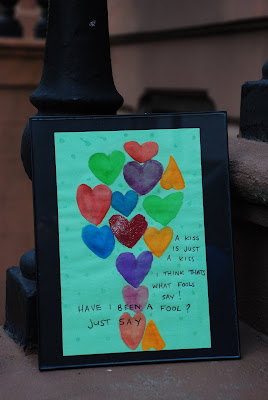 A KISS
IS JUST
A KISS
I THINK THATS
WHAT FOOLS
SAY!
HAVE I BEEN A FOOL?
JUST SAY